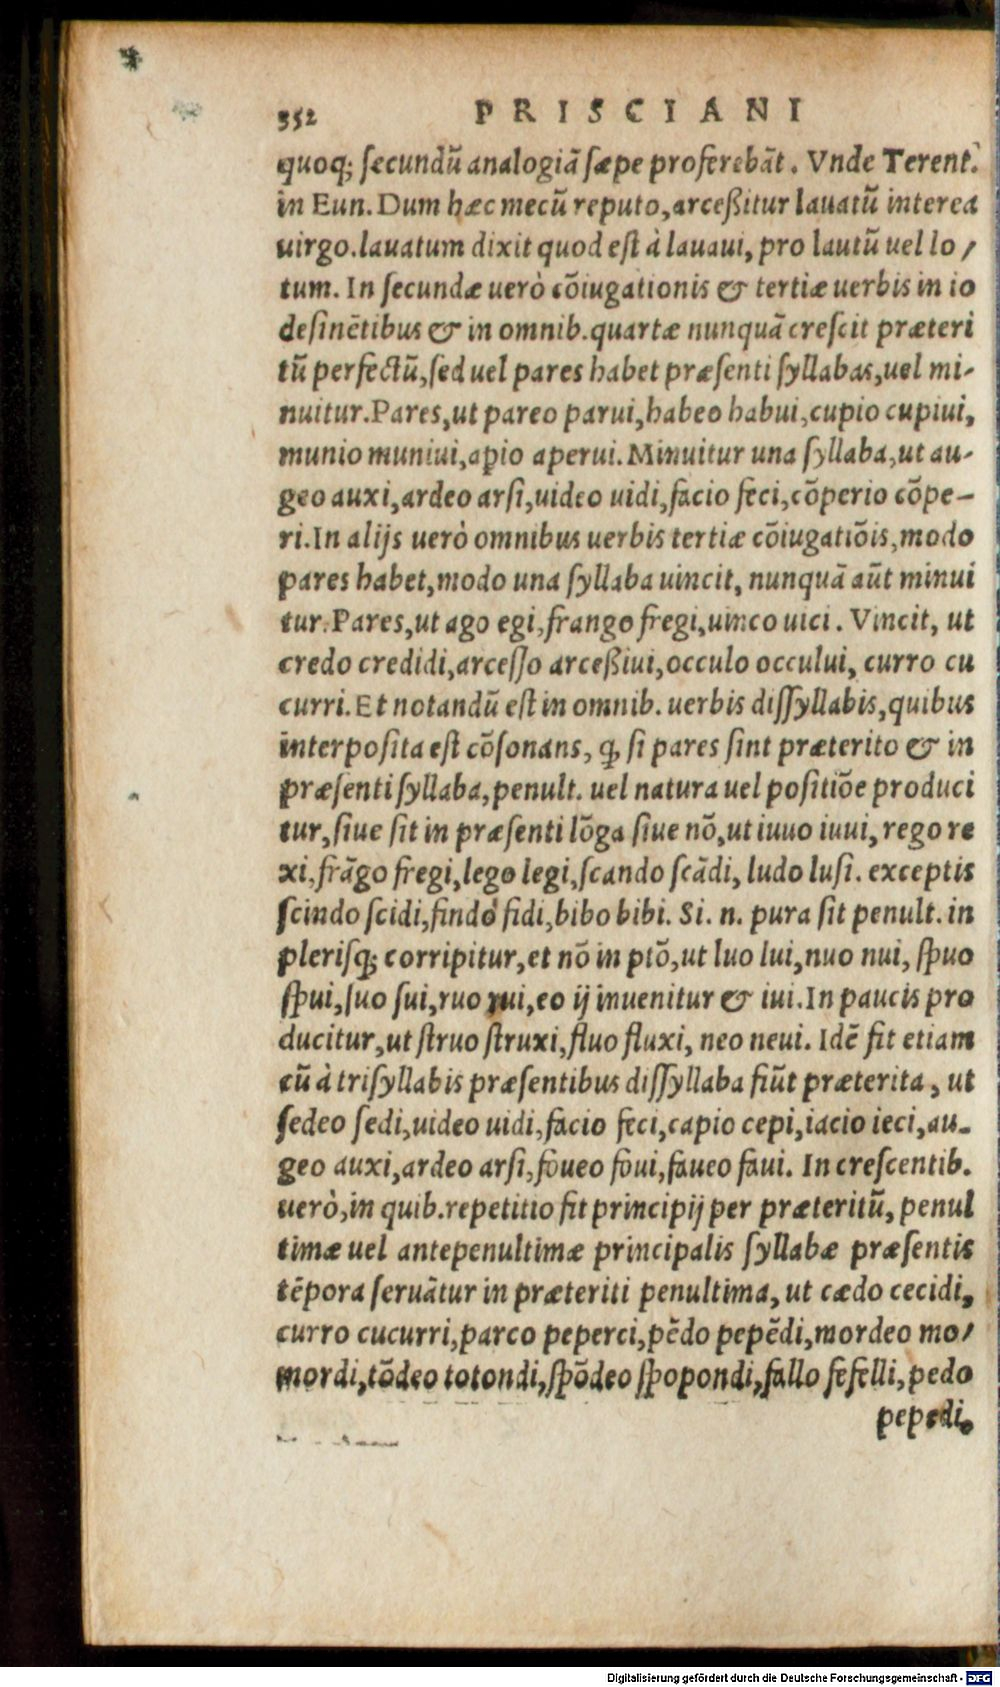 352 PRISCIANI
quoq; secundũ analogiã sæpe proferebãt. Vnde Terent.
in Eun. Dum hæc mecũ reputo, arceßitur lauatũ interea
uirgo. lauatum dixit quod est à lauaui, pro lautũ uel lo/
tum. In secundæ uerò cõiugationis & tertiæ uerbis in io
desinẽtibus & in omnib. quartæ nunquã crescit præteri
tũ perfectũ, sed uel pares habet præsenti syllabas, uel mi-
nuitur. Pares, ut pareo parui, habeo habui, cupio cupiui,
munio muniui, apio aperui. Minuitur una syllaba, ut au-
geo auxi, ardeo arsi, uideo uidi, facio feci, cõperio cõpe-
ri. In alijs uerò omnibus uerbis tertiæ cõiugatiõis, modo
pares habet, modo una syllaba uincit, nunquã aũt minui
tur. Pares, ut ago egi, frango fregi, uinco uici. Vincit, ut
credo credidi, arcesso arceßiui, occulo occului, curro cu
curri. Et notandũ est in omnib. uerbis dissyllabis, quibus
interposita est cõsonans, ꝙ si pares sint præterito & in
præsenti syllaba, penult. uel natura uel positiõe produci
tur, siue sit in præsenti lõga siue nõ, ut iuuo iuui, rego re
xi, frãgo fregi, lego legi, scando scãdi, ludo lusi. exceptis
scindo scidi, findo fidi, bibo bibi. Si. n. pura sit penult. in
plerisq; corripitur, et nõ in ptõ, ut luo lui, nuo nui, spuo
spui, suo sui, ruo rui, eo ij inuenitur & iui. In paucis pro
ducitur, ut struo struxi, fluo fluxi, neo neui. Idẽ fit etiam
cũ à trisyllabis præsentibus dissyllaba fiũt præterita, ut
sedeo sedi, uideo uidi, facio feci, capio cepi, iacio ieci, au-
geo auxi, ardeo arsi, foueo foui, faueo faui. In crescentib.
uerò, in quib. repetitio fit principij per præteritũ, penul
timæ uel antepenultimæ principalis syllabæ præsentis
tẽpora seruãtur in præteriti penultima, ut cædo cecidi,
curro cucurri, parco peperci, pẽdo pepẽdi, mordeo mo/
mordi, tõdeo totondi, spõdeo spopondi, fallo fefelli, pedo
pepedi.
Digitalisierung gefördert durch die Deutsche Forschungsgemeinschaft - DFG